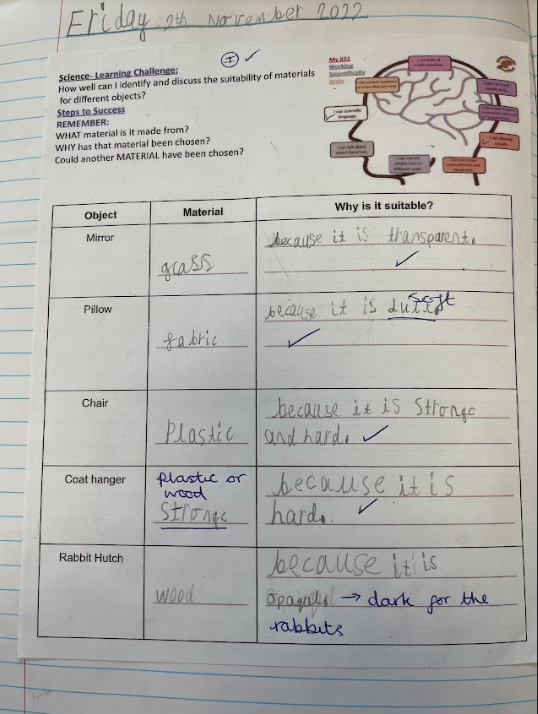 Friday 9th November 2022
I
Science- Learning Challenge:
How well can I identify and discuss the suitability of materials
for different objects?
Steps to Success
REMEMBER:
WHAT material is it made from?
WHY has that material been chosen?
Could another MATERIAL have been chosen?
My KS1
Working
Scientifically
Brain
Object Material Why is it suitable?
Mirror
because it is transparent.
grass
Pillow
because it is soft
fabric
Chair
because it is Stronge
Plastic and hard.
Coat hanger
plastic or
wood
because it is
Stronge hard.
Rabbit Hutch
because it is
wood
→ dark for the
rabbits